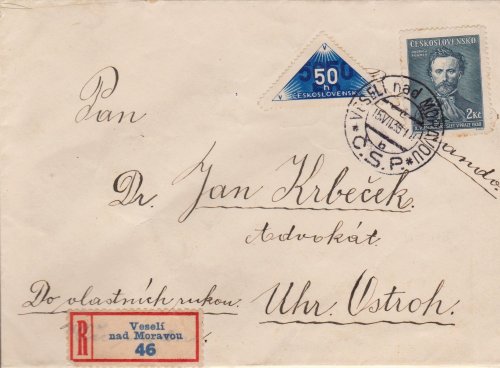 50
h
ČESKOSLOVENSKO
V
V
ČESKOSLOVENSKO
2Kč
VESELÍ nad MORAVOU
15.VII.38
b
* Č.S.P. *
Pan
Dr. Jan Krbeček
Advokát
Do vlastních rukou.
Uhr. Ostroh.
R
Veselí
nad Moravou
46